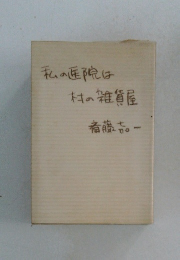 私の医院は
村の雑貨屋
斉藤嘉一